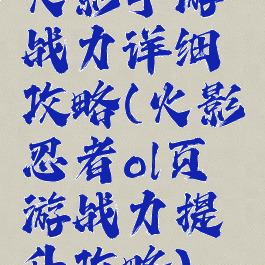 火影手游
战力详细
攻略(火影
忍者ol页
游战力提
升攻略)